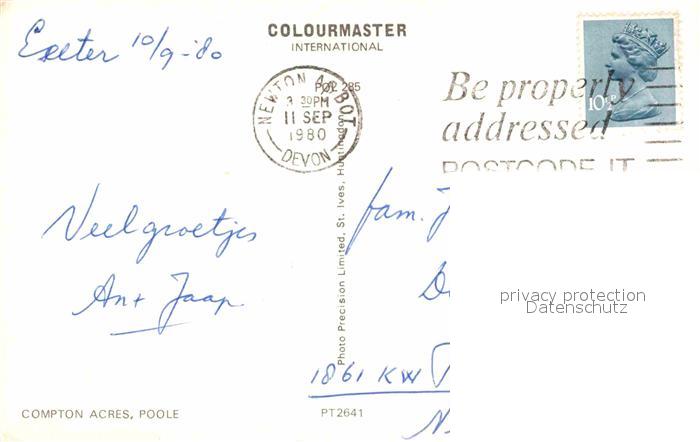 Exeter 10/9-'80
COLOURMASTER
INTERNATIONAL
POL 285
NEWTON ABBOT
3 30PM
11 SEP
1980
DEVON
Be properly
addressed
POSTCODE IT
10½P
Veel groetjes
An + Jaap
fam. J
1861 KW
N.
Photo Precision Limited, St. Ives, Huntingdon
privacy protection
Datenschutz
COMPTON ACRES, POOLE
PT2641